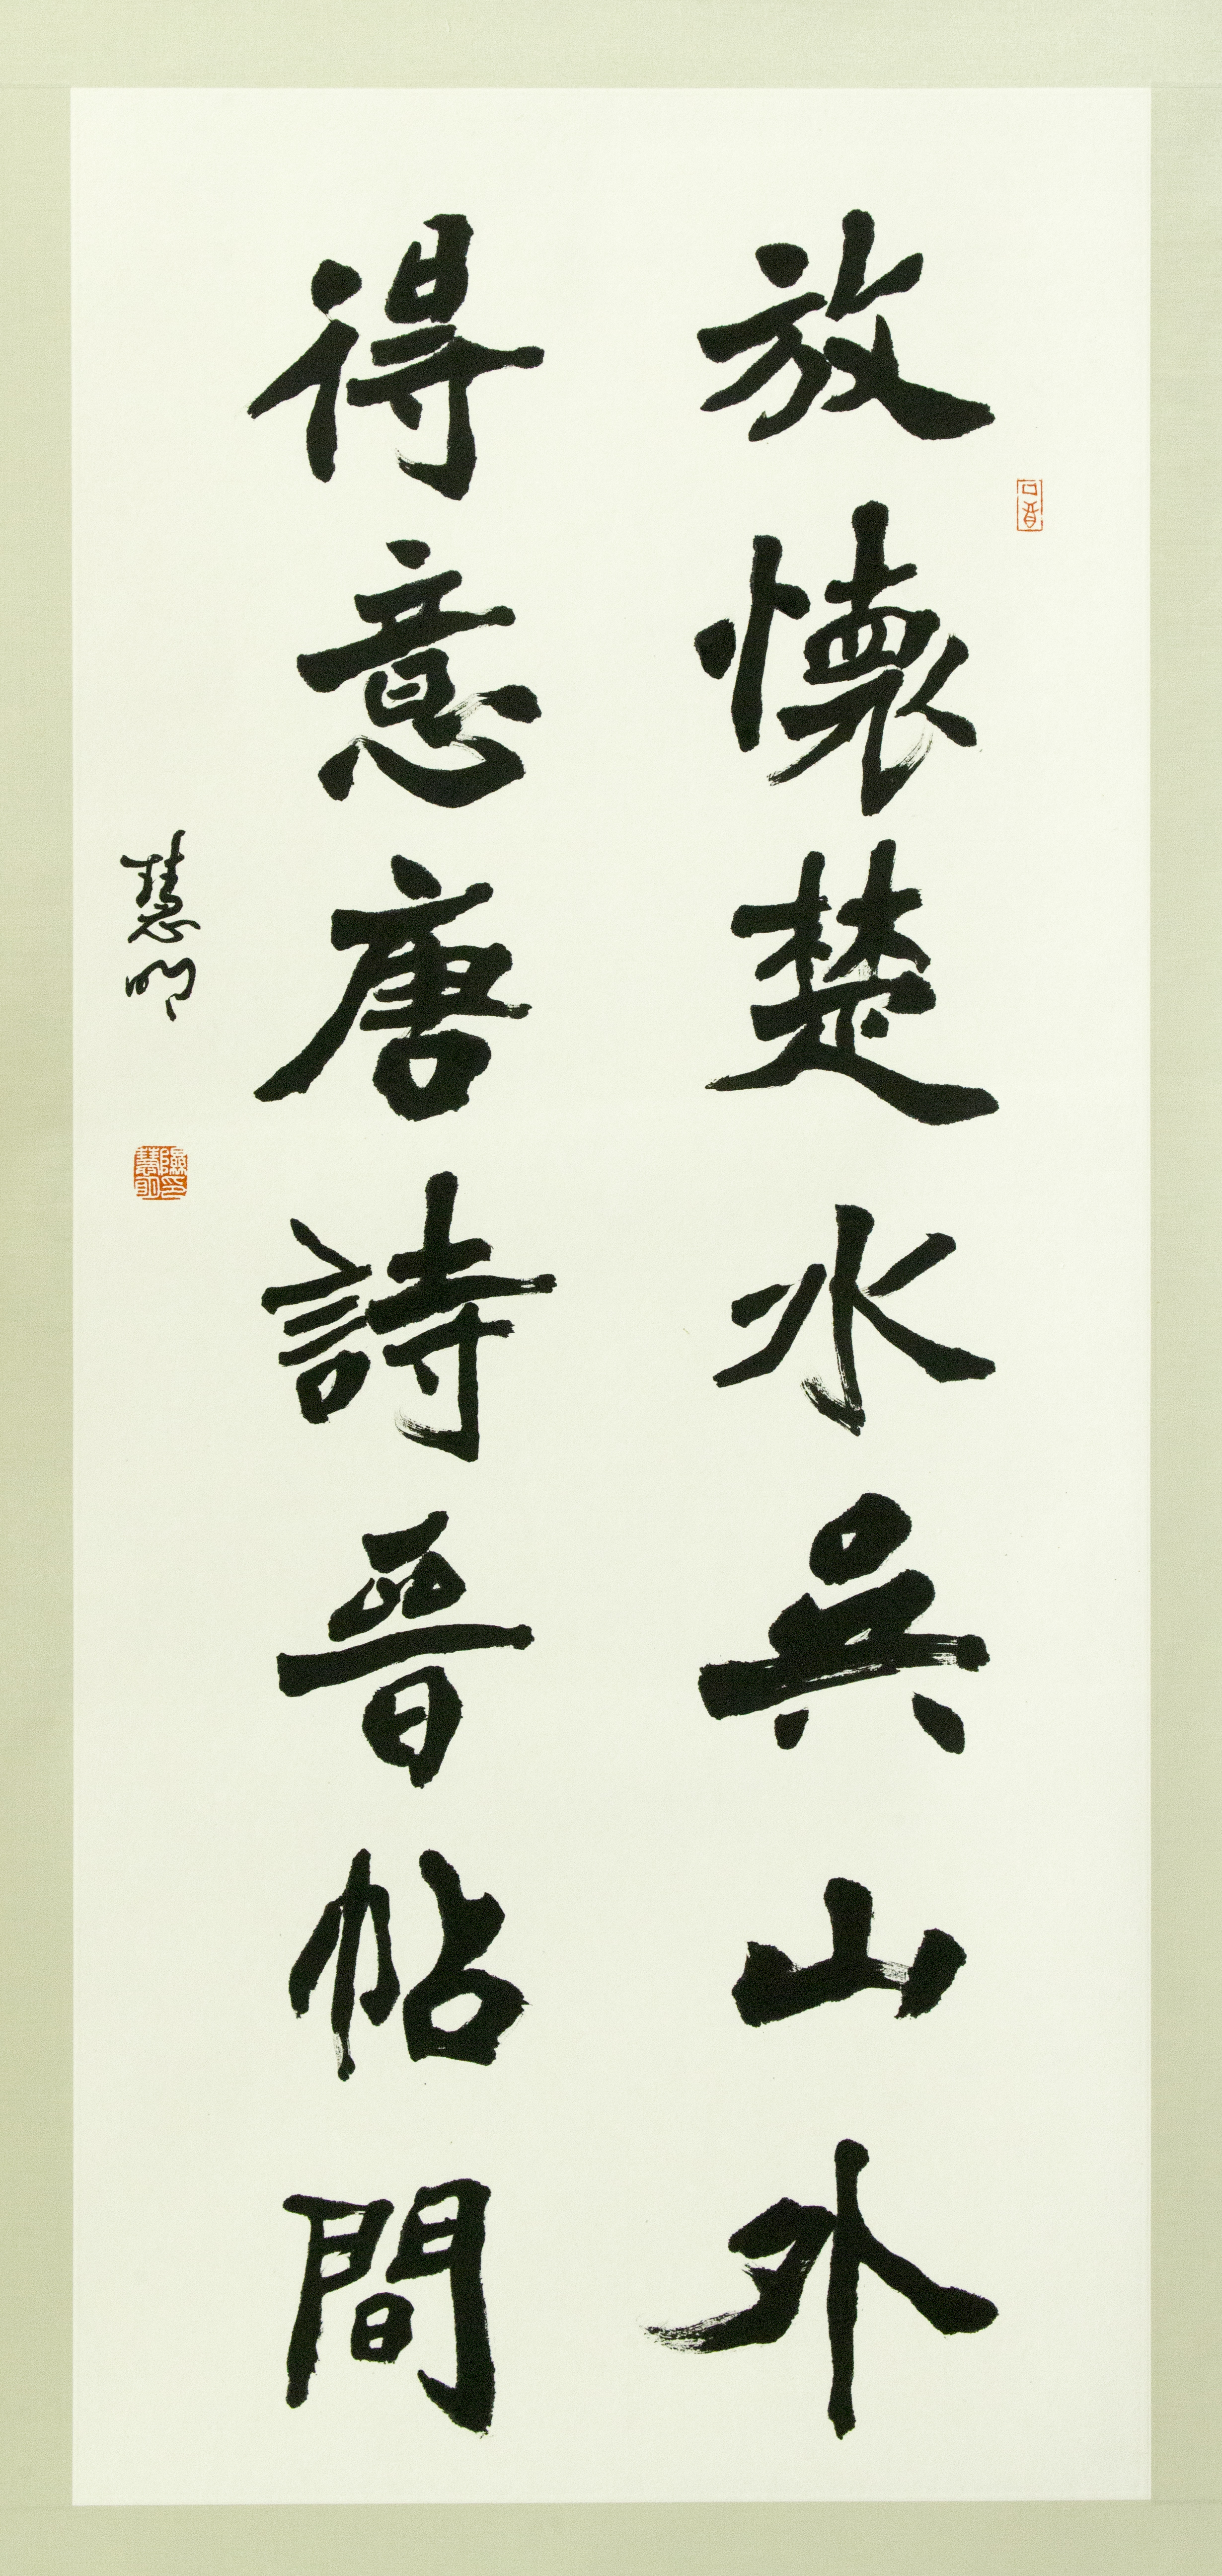 放懷楚水吳山外
得意唐詩晉帖間
慧明